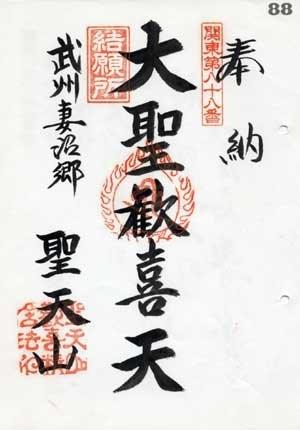 88
奉納
関東第八十八番
大聖歓喜天
結願所
武州妻沼郷
聖天山